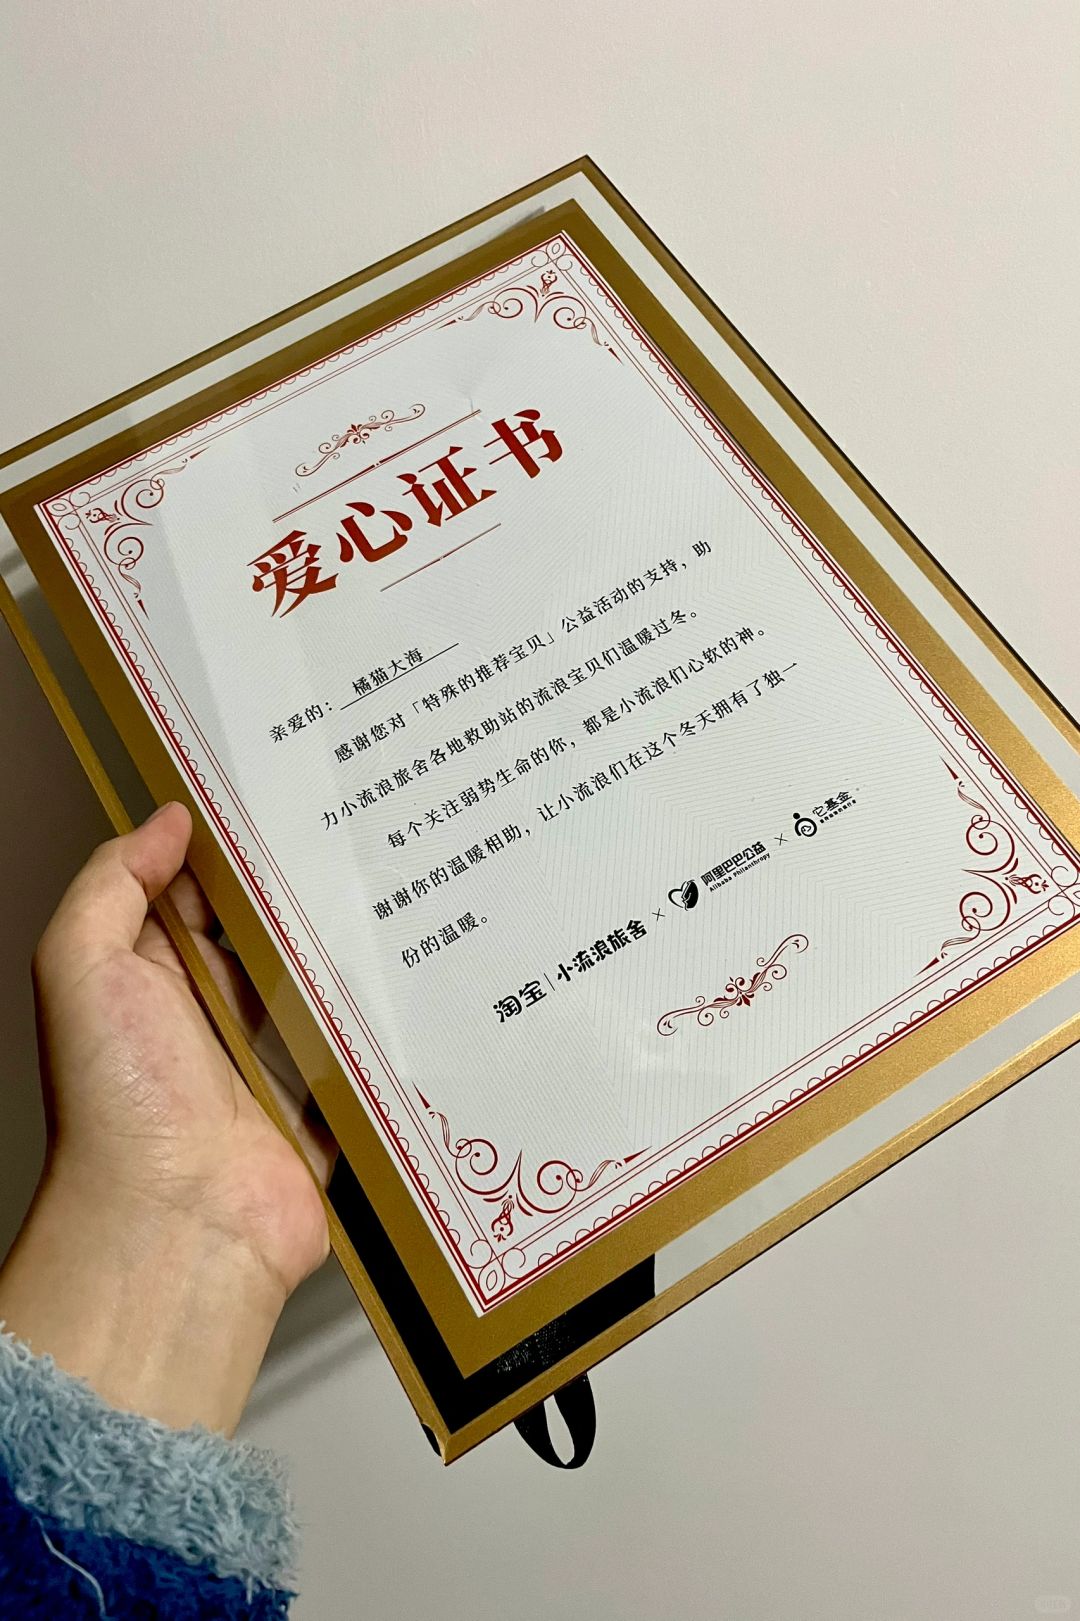 爱心证书
亲爱的：橘猫大海
感谢您对「特殊的推荐宝贝」公益活动的支持，助
力小流浪旅舍各地救助站的流浪宝贝们温暖过冬。
每个关注弱势生命的你，都是小流浪们心软的神。
谢谢你的温暖相助，让小流浪们在这个冬天拥有了独一
份的温暖。
淘宝|小流浪旅舍 × 阿里巴巴公益 Alibaba Philanthropy × 它基金